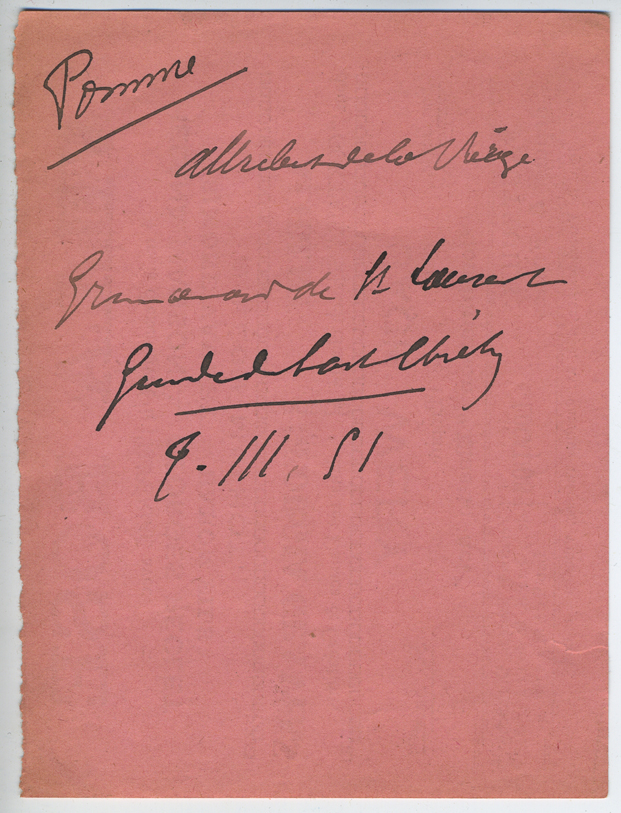 Pomme
attribut de la Vierge
Grimouard de St Laurent
Guide de l'art Chrét
T. III. 51